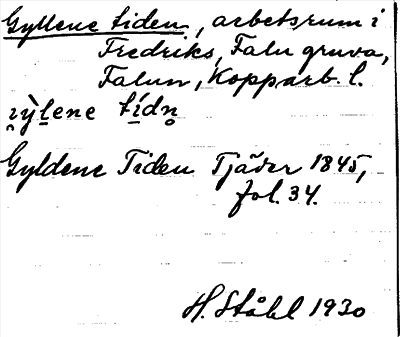 Gyllene tiden, arbetsrum i
Fredriks, Falu gruva,
Falun, Kopparb. l.
ı̯ỳḷene tídn̥
Gyldene Tiden Tjäder 1845,
fol. 34.
H. Ståhl 1930